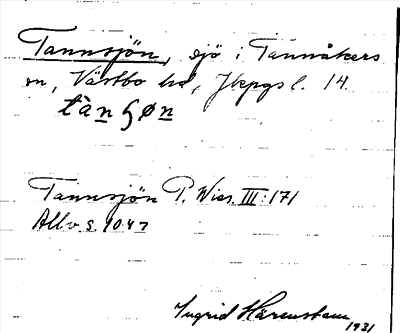 Tannsjön, sjö i Tannåkers
sn, Västbo hd, Jkpgs l. 14.
tànʃøn
Tannsjön P. Wies. III:171
Allv s 1047
Ingrid Härenstam
1931